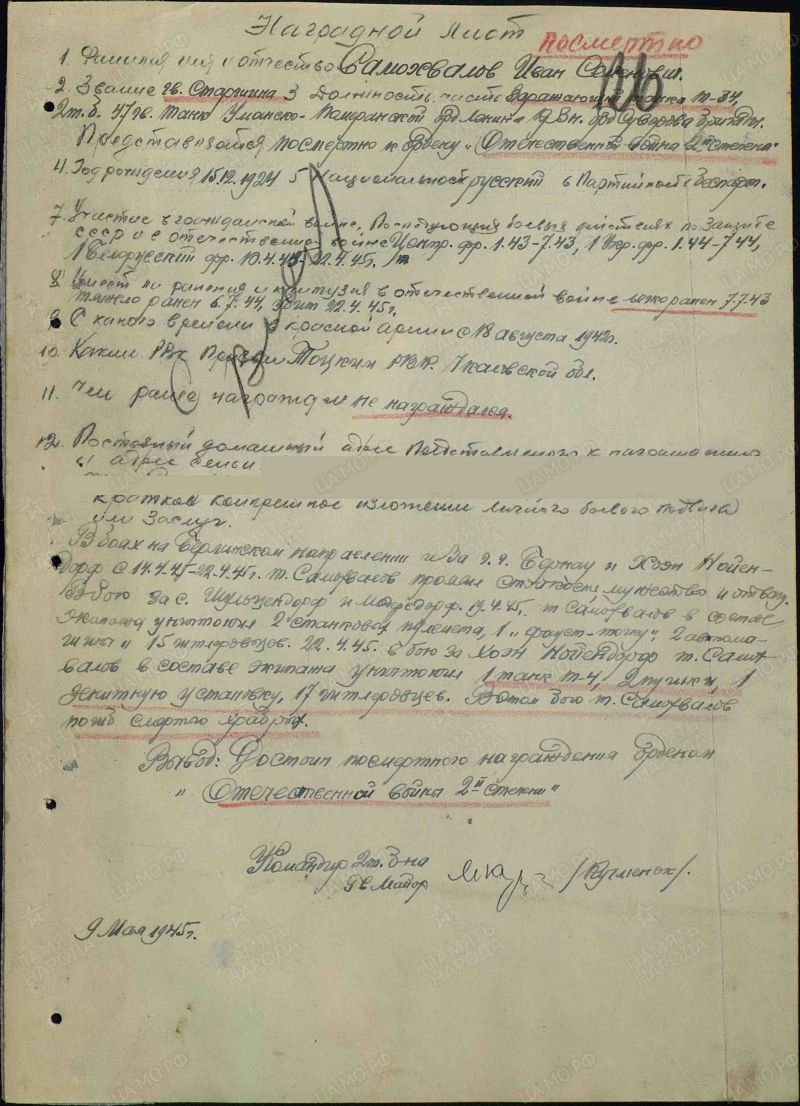 Наградной Лист
посмертно
126
1. Фамилия имя и отчество Самохвалов Иван Семенович.
2. Звание гв. Старшина 3 Должность, часть Заряжающий танка Т-34,
2 т.б. 47 гв. танк Уманско- орд Ленина Кр Зн. орд Суворова бригады.
Представляется посмертно к Ордену "Отечественной война 2й степени"
4. Год рождения 15.12.1924 5 Национальность русский 6 Партийность беспарт.
7. Участие в гражданской войне, последующих боевых действиях по защите
СССР и в отечественной войне Центр. фр. 1.43-7.43, 1 Укр. фр. 1.44-7.44,
1 Белорусский фр. 22.4.45г.
8. Имеет ли ранения и контузия в отечественной войне легко ранен 7.7.43
тяжело ранен 6.7.44, убит 22.4.45г,
9. С какого времени в красной армии с 18 августа 1942г.
10. Каким РВк Призван Тоцким РВК. Чкаловской обл.
11. Чем ранее награжден не награждался.
12. Постоянный домашний адрес Представленного к награждению
и адрес семьи.
краткое конкретное изложении личного боевого подвига
или Заслуг.
В боях на Берлинском направлении и За г.г. Бернау и Хоэн Нойен-
дорф с 14.4.45-22.4.45г. т. Самохвалов проявил стойкость мужество и отвагу.
В бою за с. Шульцендорф и 19.4.45. т Самохвалов в составе
экипажа уничтожил 2 станковых пулемета, 1 "фауст-точку", 2 автома-
шины 15 гитлеровцев. 22.4.45. в бою за Хоэн Нойендорф т. Само-
хвалов в составе экипажа уничтожил 1 танк Т-4, 2 пушки, 1
зенитную установку, 17 гитлеровцев. В этом бою т. Самохвалов
погиб смертью храбрых.
Вывод: Достоин посмертного награждения Орденом
"Отечественной войны 2й степени"
Командир 2т. б-на
гв Майор
9 Мая 1945г.